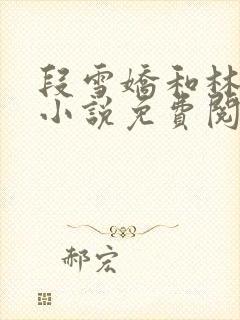 段雪嬌和林
小說免費閱
郝宏